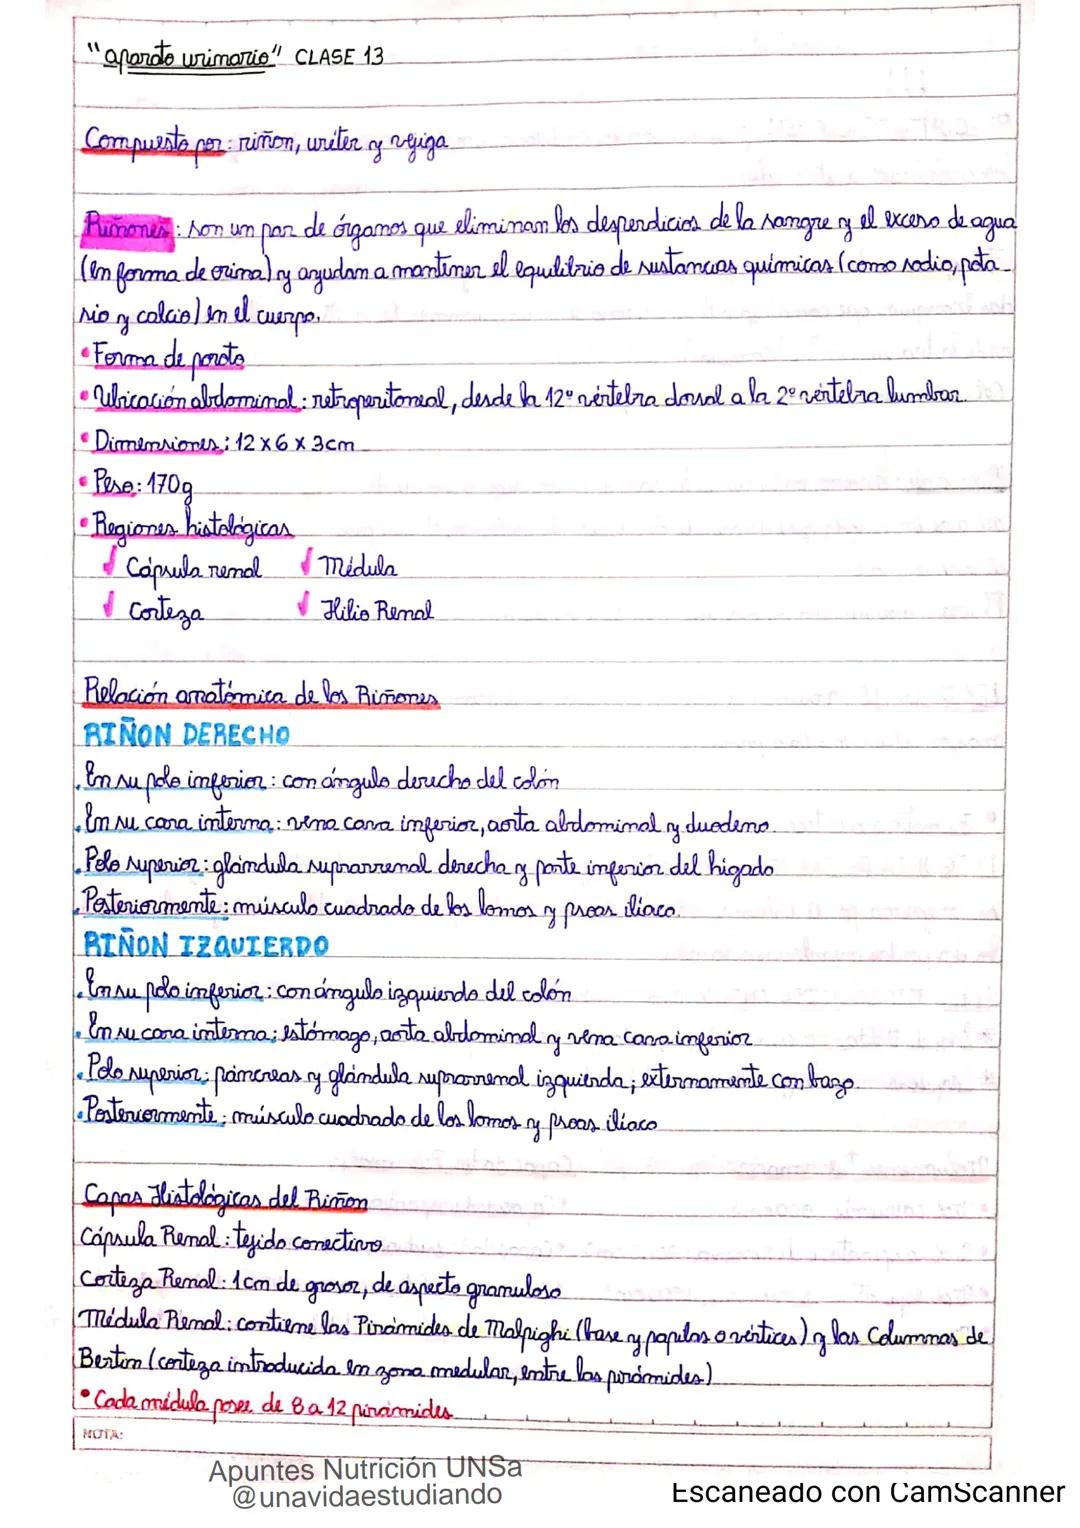 "aparato urinario" CLASE 13
Compuesto por: riñon, uréter y vejiga
Riñones: son un par de órganos que eliminan los desperdicios de la sangre y el exceso de agua
(en forma de orina) y ayudan a mantener el equilibrio de sustancias químicas (como sodio, pota
sio y calcio) en el cuerpo.
• Forma de poroto
• Ubicación abdominal: retroperitoneal, desde la 12° vértebra dorsal a la 2° vértebra lumbar.
• Dimensiones: 12 x 6 x 3cm
• Peso: 170g
• Regiones histológicas
✓ Cápsula renal ✓ Médula
✓ Corteza ✓ Hilio Renal
Relación anatómica de los Riñones
RIÑON DERECHO
. En su polo inferior: con ángulo derecho del colón
. En su cara interna: vena cava inferior, aorta abdominal y duodeno.
. Polo superior: glándula suprarrenal derecha y parte inferior del higado
. Posteriormente: músculo cuadrado de los lomos y psoas iliaco.
RIÑON IZQUIERDO
. En su polo inferior: con ángulo izquierdo del colón
. En su cara interna: estómago, aorta abdominal y vena cava inferior
. Polo superior: páncreas y glándula suprarrenal izquierda; externamente con bazo.
. Posteriormente: músculo cuadrado de los lomos y psoas iliaco
Capas Histológicas del Riñon
Cápsula Renal: tejido conectivo
Corteza Renal: 1cm de grosor, de aspecto granuloso
Médula Renal: contiene las Pirámides de Malpighi (base y papilas o vértices) y las Columnas de
Bertin (corteza introducida en zona medular, entre las pirámides)
• Cada médula posee de 8 a 12 pirámides
NOTA:
Apuntes Nutrición UNSa
@unavidaestudiando
Escaneado con CamScanner